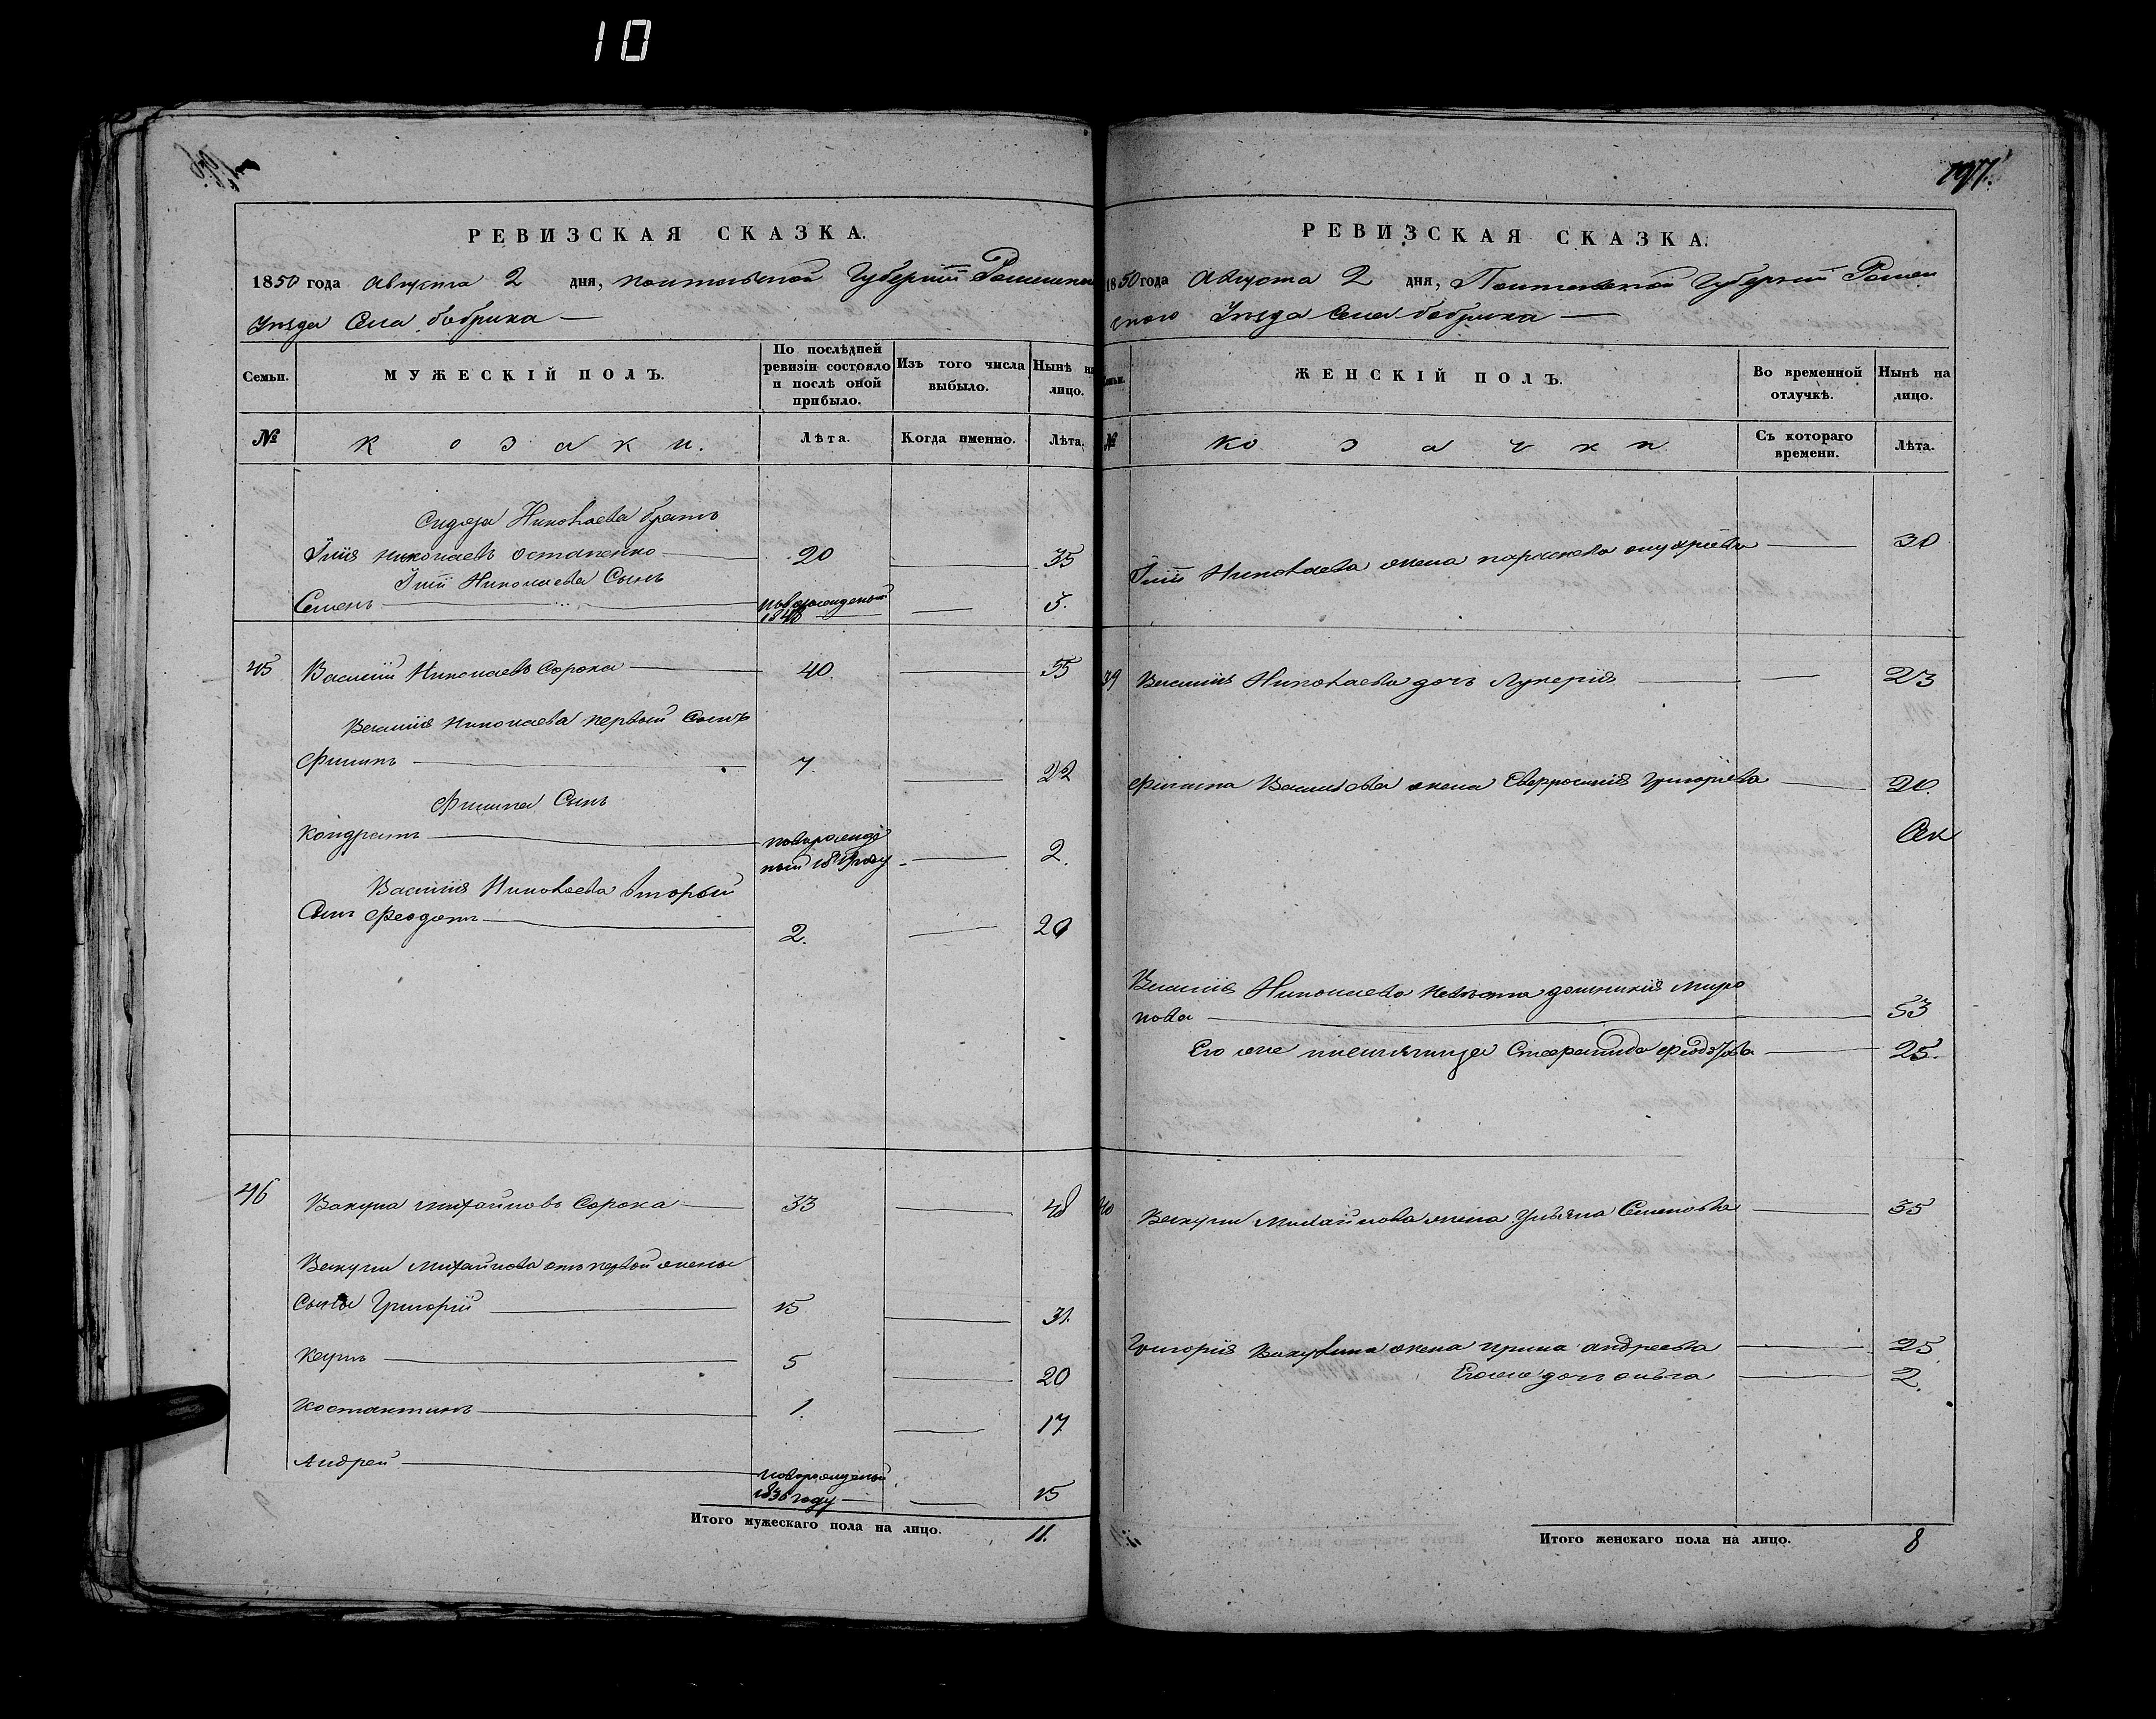 10
197.
РЕВИЗСКАЯ СКАЗКА.
1850 года Августа 2 дня, Полтавской Губерніи Роменскаго
Уезда Села бобрика
Семьи. МУЖЕСКІЙ ПОЛЪ. По послѣдней ревизіи состояло и послѣ оной прибыло. Изъ того числа выбыло. Нынѣ на лицо.
№ Козаки. Лѣта. Когда именно. Лѣта.
Сидора Николаева братъ
Илія Николаевъ Остапенко 20 35
Иліи Николаева Сынъ
Семенъ новорожденый 1848 3.
45 Василій Николаевъ Сорока 40. 55
Василія Николаева первый Сынъ
Филипъ 7. 22
Филипа Сынъ
Кондратъ новорожде
ный 1849 году 2.
Василія Николаева вторый
Сынъ Феодотъ 2. 20
46 Вакула Михайловъ Сорока 33 48
Вакулы Михайлова отъ первой жены
Сыны Григорій 15 31.
Карпъ 5 20
Костантинъ 1. 17
Андрей новорожденый
1836 году 15
Итого мужескаго пола на лицо. 11.
РЕВИЗСКАЯ СКАЗКА.
1850 года Августа 2 дня, Полтавской Губерніи Ромен
ского Уезда Села бобрика
Семьи. ЖЕНСКІЙ ПОЛЪ. Во временной отлучкѣ. Нынѣ на лицо.
№ Козачки Съ котораго времени. Лѣта.
Иліи Николаева жена параскева 30
39 Василія Николаева дочь Лукерія 23
Филипа Васильева жена Евфросинія Григорьева 20.
Василія Николаева невѣстка Миро
нова 53
Его же племяница Степанида 25.
40 Вакулы Михайлова жена Ульяна Семеновна 35
Григорія Вакулина жена Ирина андреева 25
Его же дочь ольга 2.
Итого женскаго пола на лицо. 8